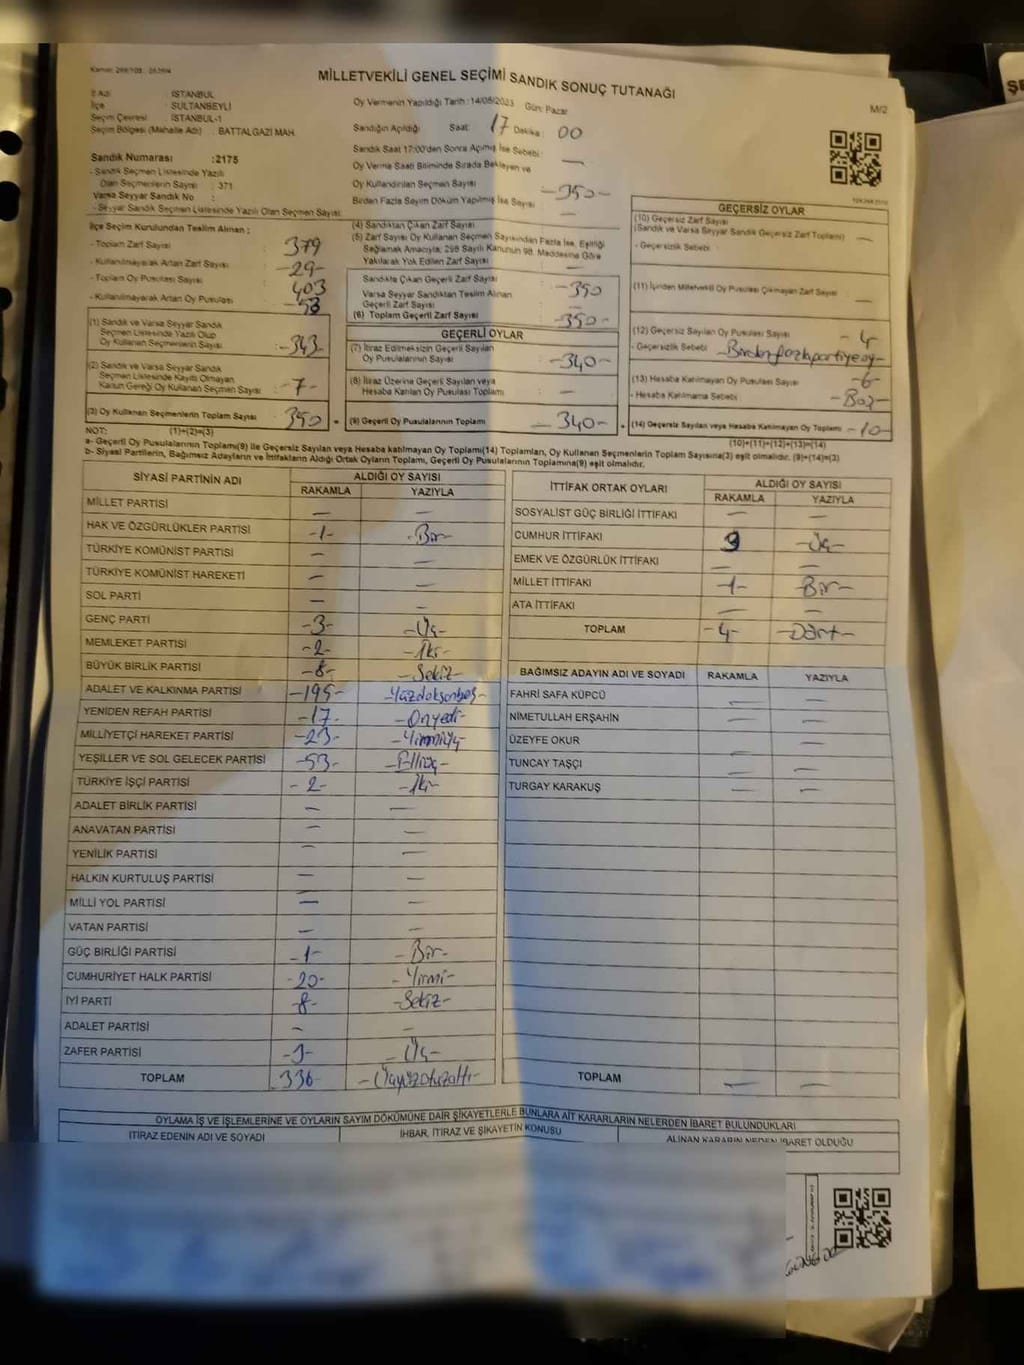 MİLLETVEKİLİ GENEL SEÇİMİ SANDIK SONUÇ TUTANAĞI
M/2
İl Adı : İSTANBUL
İlçe : SULTANBEYLİ
Seçim Çevresi : İSTANBUL-1
Seçim Bölgesi (Mahalle Adı) : BATTALGAZİ MAH.
Oy Vermenin Yapıldığı Tarih : 14/05/2023 Gün: Pazar
Sandığın Açıldığı Saat: 17 Dakika: 00
Sandık Saati 17:00'den Sonra Açılmış İse Sebebi: —
Oy Verme Saati Bitiminde Sırada Bekleyen ve
Oy Kullandırılan Seçmen Sayısı
-350-
Birden Fazla Sayım Döküm Yapılmış İse Sayısı —
Sandık Numarası : 2175
- Sandık Seçmen Listesinde Yazılı
Olan Seçmenlerin Sayısı : 371
Varsa Seyyar Sandık No :
- Seyyar Sandık Seçmen Listesinde Yazılı Olan Seçmen Sayısı:
İlçe Seçim Kurulundan Teslim Alınan :
- Toplam Zarf Sayısı : 379
- Kullanılmayarak Artan Zarf Sayısı : -29-
- Toplam Oy Pusulası Sayısı : 403
- Kullanılmayarak Artan Oy Pusulası : -53
(1) Sandık ve Varsa Seyyar Sandık
Seçmen Listesinde Yazılı Olup
Oy Kullanan Seçmenlerin Sayısı : -343-
(2) Sandık ve Varsa Seyyar Sandık
Seçmen Listesinde Kayıtlı Olmayan
Kanun Gereği Oy Kullanan Seçmen Sayısı : -7-
(3) Oy Kullanan Seçmenlerin Toplam Sayısı : 350
(4) Sandıktan Çıkan Zarf Sayısı
(5) Zarf Sayısı Oy Kullanan Seçmen Sayısından Fazla İse, Eşitliği
Sağlamak Amacıyla, 298 Sayılı Kanunun 98. Maddesine Göre
Yakılarak Yok Edilen Zarf Sayısı —
Sandıkta Çıkan Geçerli Zarf Sayısı -350
Varsa Seyyar Sandıktan Teslim Alınan
Geçerli Zarf Sayısı —
(6) Toplam Geçerli Zarf Sayısı -350-
GEÇERLİ OYLAR
(7) İtiraz Edilmeksizin Geçerli Sayılan
Oy Pusulalarının Sayısı : -340-
(8) İtiraz Üzerine Geçerli Sayılan veya
Hesaba Katılan Oy Pusulası Toplamı : —
(9) Geçerli Oy Pusulalarının Toplamı : -340-
GEÇERSİZ OYLAR
(10) Geçersiz Zarf Sayısı
(Sandık ve Varsa Seyyar Sandık Geçersiz Zarf Toplamı) —
- Geçersizlik Sebebi :
(11) İçinden Milletvekili Oy Pusulası Çıkmayan Zarf Sayısı : —
(12) Geçersiz Sayılan Oy Pusulası Sayısı : -4
- Geçersizlik Sebebi : -Birden fazla partiye oy-
(13) Hesaba Katılmayan Oy Pusulası Sayısı : -6-
- Hesaba Katılmama Sebebi : -Boş-
(14) Geçersiz Sayılan veya Hesaba Katılmayan Oy Toplamı -10-
NOT: (1)+(2)=(3)
(10)+(11)+(12)+(13)=(14)
a- Geçerli Oy Pusulalarının Toplamı(9) ile Geçersiz Sayılan veya Hesaba katılmayan Oy Toplamı(14) Toplamları, Oy Kullanan Seçmenlerin Toplam Sayısına(3) eşit olmalıdır. (9)+(14)=(3)
b- Siyasi Partilerin, Bağımsız Adayların ve İttifakların Aldığı Ortak Oyların Toplamı, Geçerli Oy Pusulalarının Toplamına(9) eşit olmalıdır.
SİYASİ PARTİNİN ADI ALDIĞI OY SAYISI
RAKAMLA YAZIYLA
MİLLET PARTİSİ — —
HAK VE ÖZGÜRLÜKLER PARTİSİ -1- -Bir-
TÜRKİYE KOMÜNİST PARTİSİ — —
TÜRKİYE KOMÜNİST HAREKETİ — —
SOL PARTİ — —
GENÇ PARTİ -3- -Üç-
MEMLEKET PARTİSİ -2- -İki-
BÜYÜK BİRLİK PARTİSİ -8- -Sekiz-
ADALET VE KALKINMA PARTİSİ -195- -Yüzdoksanbeş-
YENİDEN REFAH PARTİSİ -17- -Onyedi-
MİLLİYETÇİ HAREKET PARTİSİ -23- -Yirmiüç
YEŞİLLER VE SOL GELECEK PARTİSİ -53- -Elliüç-
TÜRKİYE İŞÇİ PARTİSİ -2- -İki-
ADALET BİRLİK PARTİSİ — —
ANAVATAN PARTİSİ — —
YENİLİK PARTİSİ — —
HALKIN KURTULUŞ PARTİSİ — —
MİLLİ YOL PARTİSİ — —
VATAN PARTİSİ — —
GÜÇ BİRLİĞİ PARTİSİ -1- -Bir-
CUMHURİYET HALK PARTİSİ -20- -Yirmi-
İYİ PARTİ -8- -Sekiz-
ADALET PARTİSİ — —
ZAFER PARTİSİ -3- -Üç-
TOPLAM 336- -Üçyüzotuzaltı-
İTTİFAK ORTAK OYLARI ALDIĞI OY SAYISI
RAKAMLA YAZIYLA
SOSYALİST GÜÇ BİRLİĞİ İTTİFAKI — —
CUMHUR İTTİFAKI -Üç-
EMEK VE ÖZGÜRLÜK İTTİFAKI — —
MİLLET İTTİFAKI -1- -Bir-
ATA İTTİFAKI — —
TOPLAM -4- -Dört-
BAĞIMSIZ ADAYIN ADI VE SOYADI RAKAMLA YAZIYLA
FAHRİ SAFA KÜPCÜ — —
NİMETULLAH ERŞAHİN — —
ÜZEYFE OKUR —
TUNCAY TAŞÇI — —
TURGAY KARAKUŞ — —
TOPLAM — —
OYLAMA İŞ VE İŞLEMLERİNE VE OYLARIN SAYIM DÖKÜMÜNE DAİR ŞİKAYETLERLE BUNLARA AİT KARARLARIN NELERDEN İBARET BULUNDUKLARI
İTİRAZ EDENİN ADI VE SOYADI İHBAR, İTİRAZ VE ŞİKAYETİN KONUSU ALINAN KARARIN NEDEN İBARET OLDUĞU